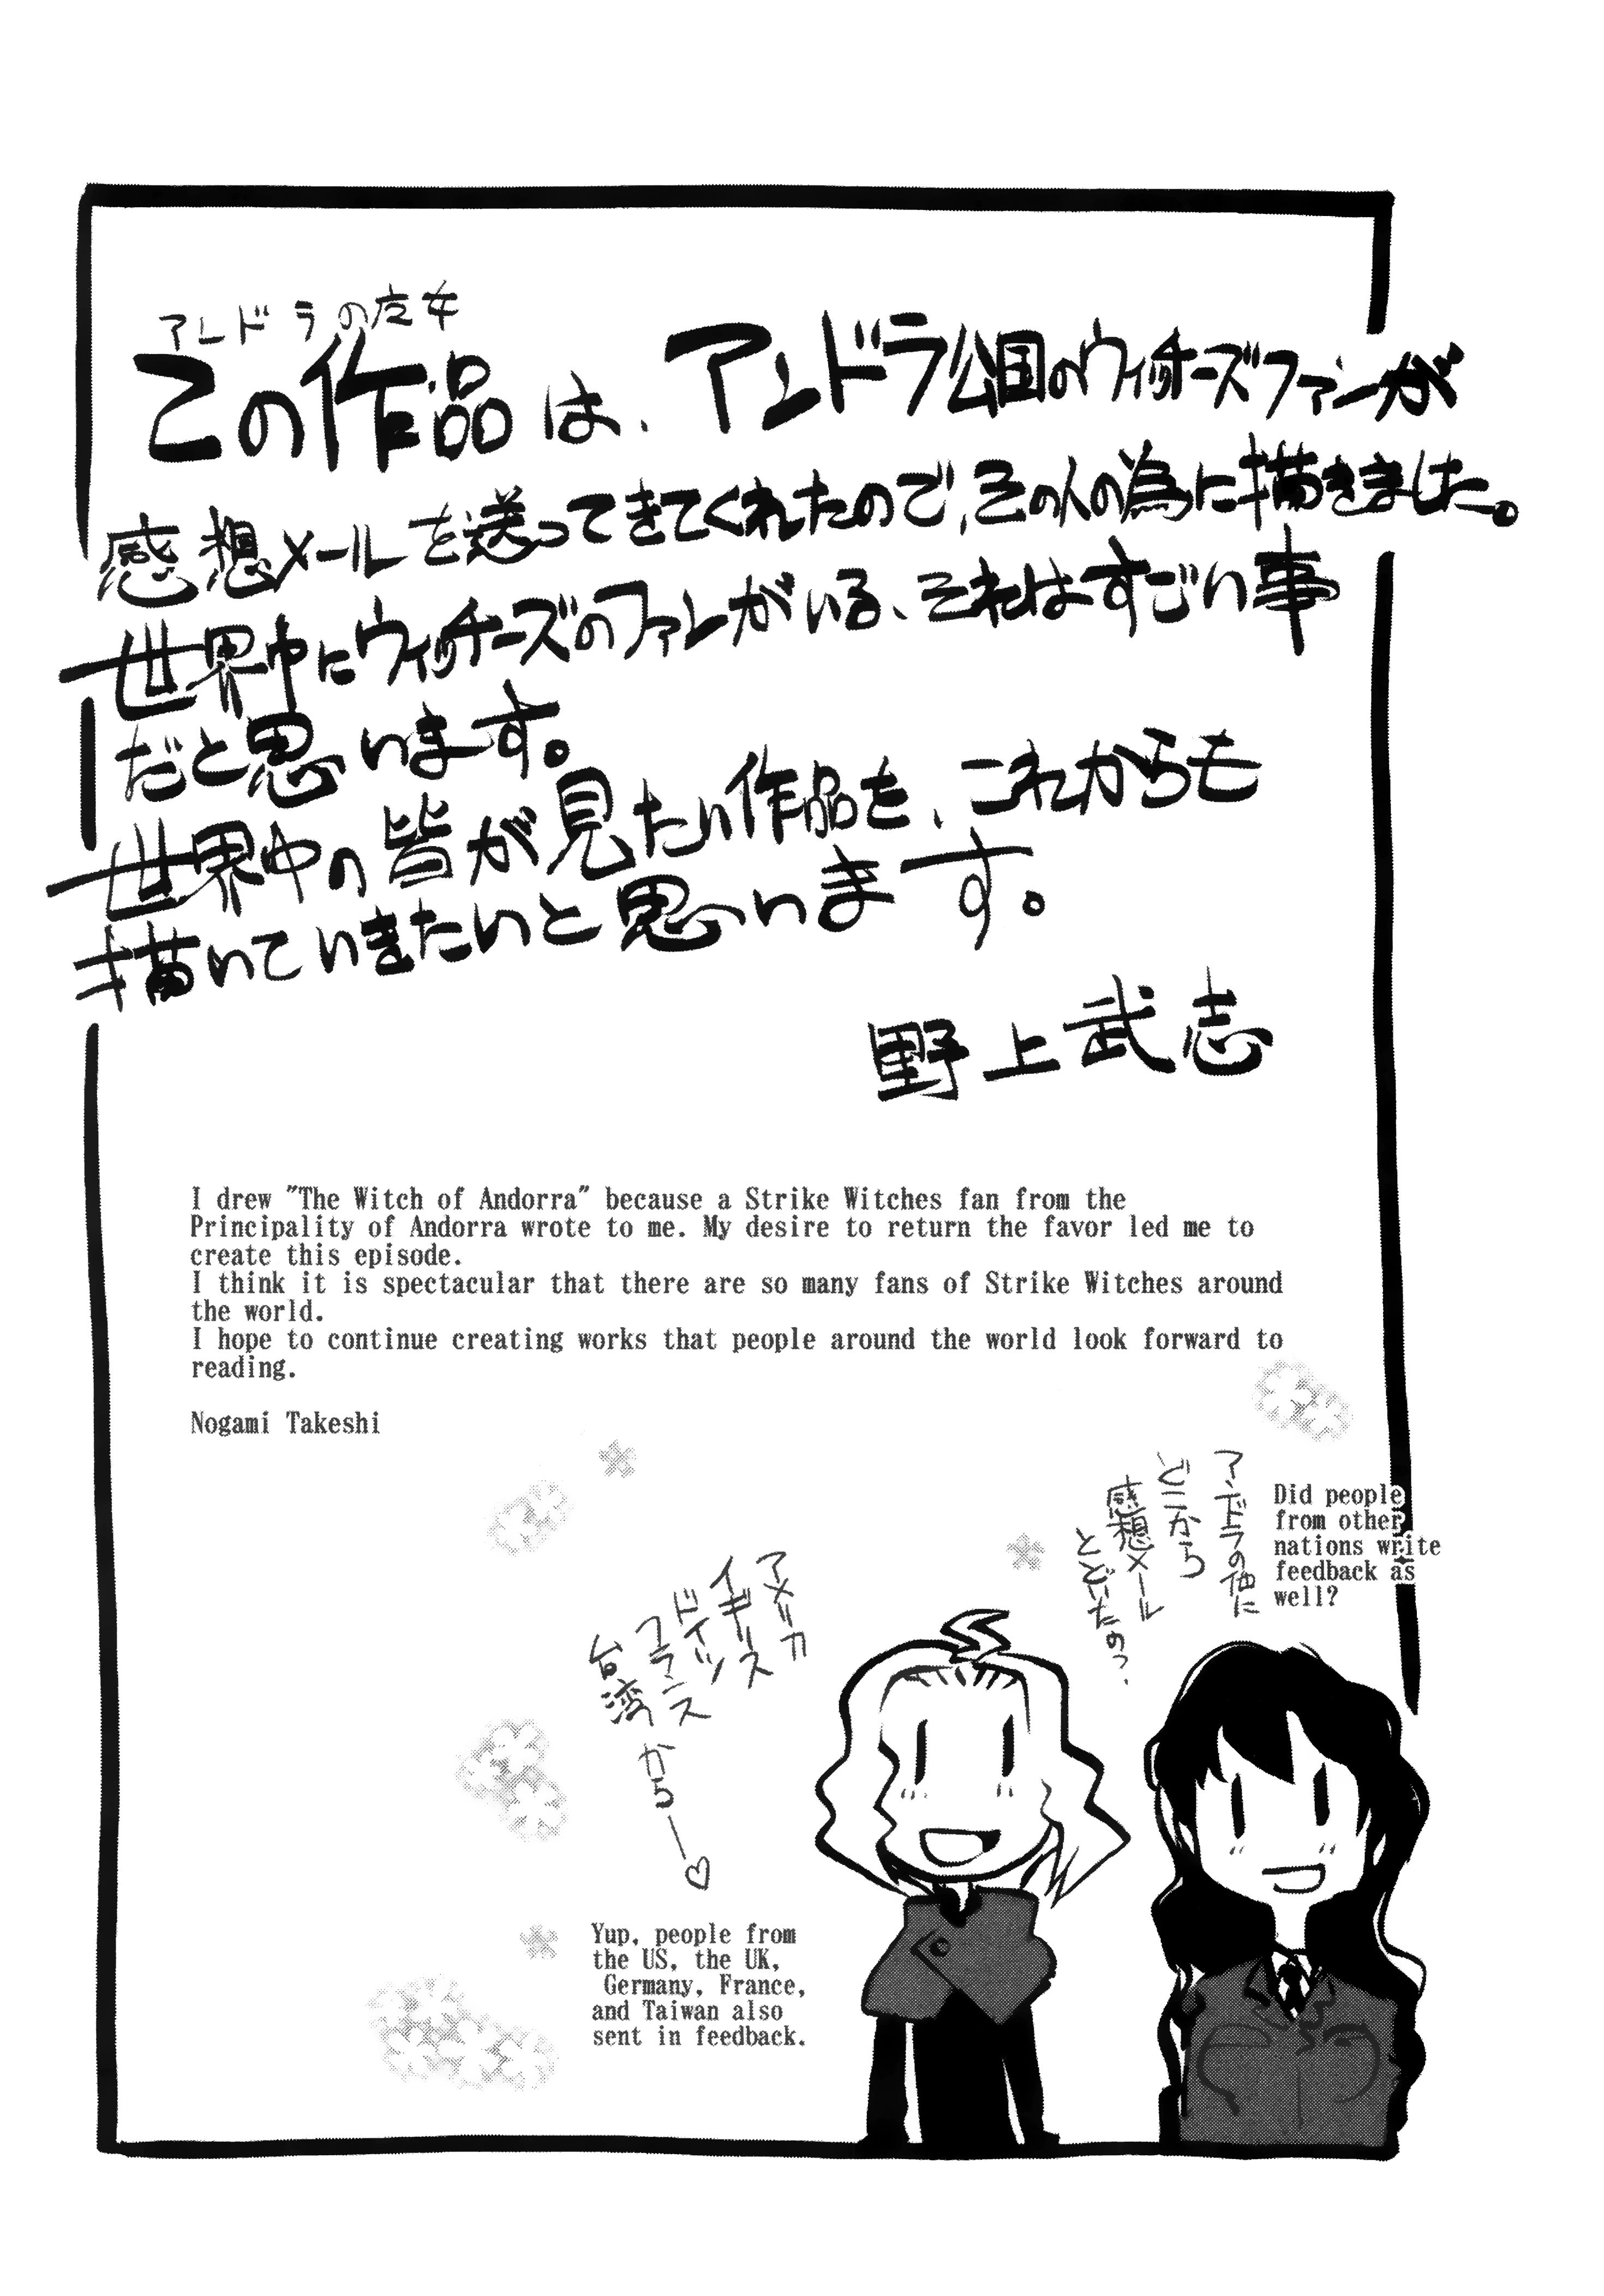 アンドラの魔女
この作品は、アンドラ公国のウィッチーズファンが
感想メールを送ってきてくれたので、その人の為に描きました。
世界中にウィッチーズのファンがいる、それはすごい事
だと思います。
世界中の皆が見たい作品を、これからも
描いていきたいと思います。
野上武志
I drew "The Witch of Andorra" because a Strike Witches fan from the
Principality of Andorra wrote to me. My desire to return the favor led me to
create this episode.
I think it is spectacular that there are so many fans of Strike Witches around
the world.
I hope to continue creating works that people around the world look forward to
reading.
Nogami Takeshi
アンドラの他に
どこから
感想メール
とどいたの?
Did people
from other
nations write
feedback as
well?
アメリカ
イギリス
ドイツ
フランス
台湾から―♡
Yup, people from
the US, the UK,
Germany, France,
and Taiwan also
sent in feedback.